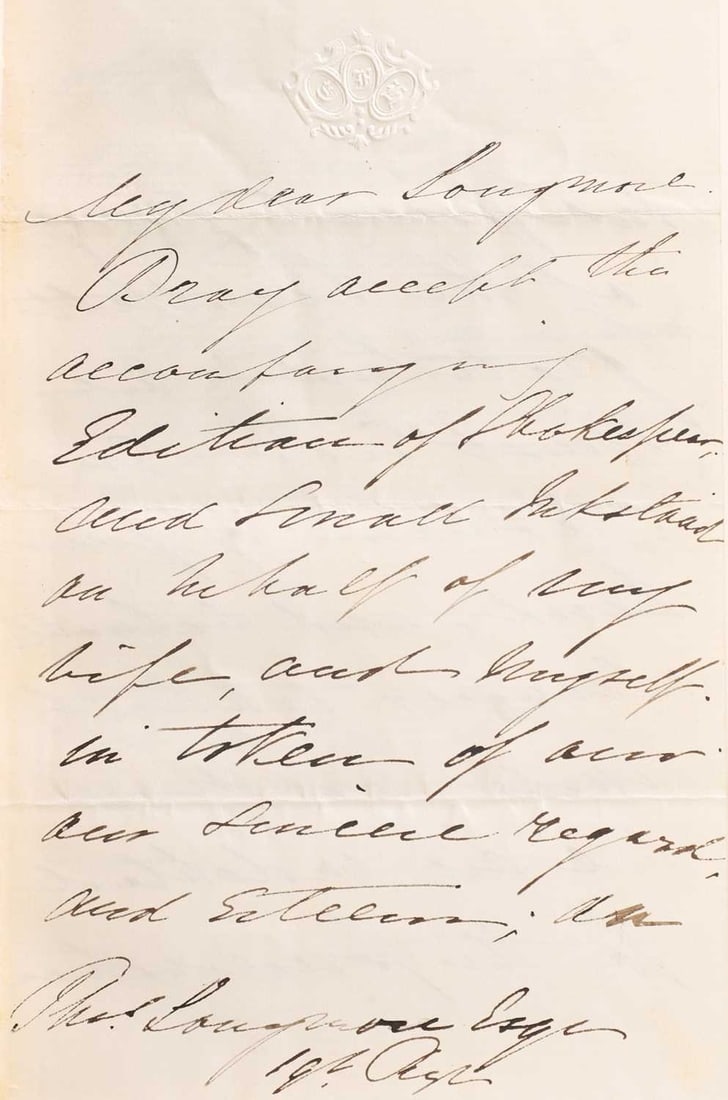 My dear Longmore.
Pray accept the
accompanying
Edition of Shakespear,
and small Inkstand
on behalf of my
wife, and myself.
in token of our
our sincere regard,
and Esteem; an
Thos. Longmore Esqr
19th Regt